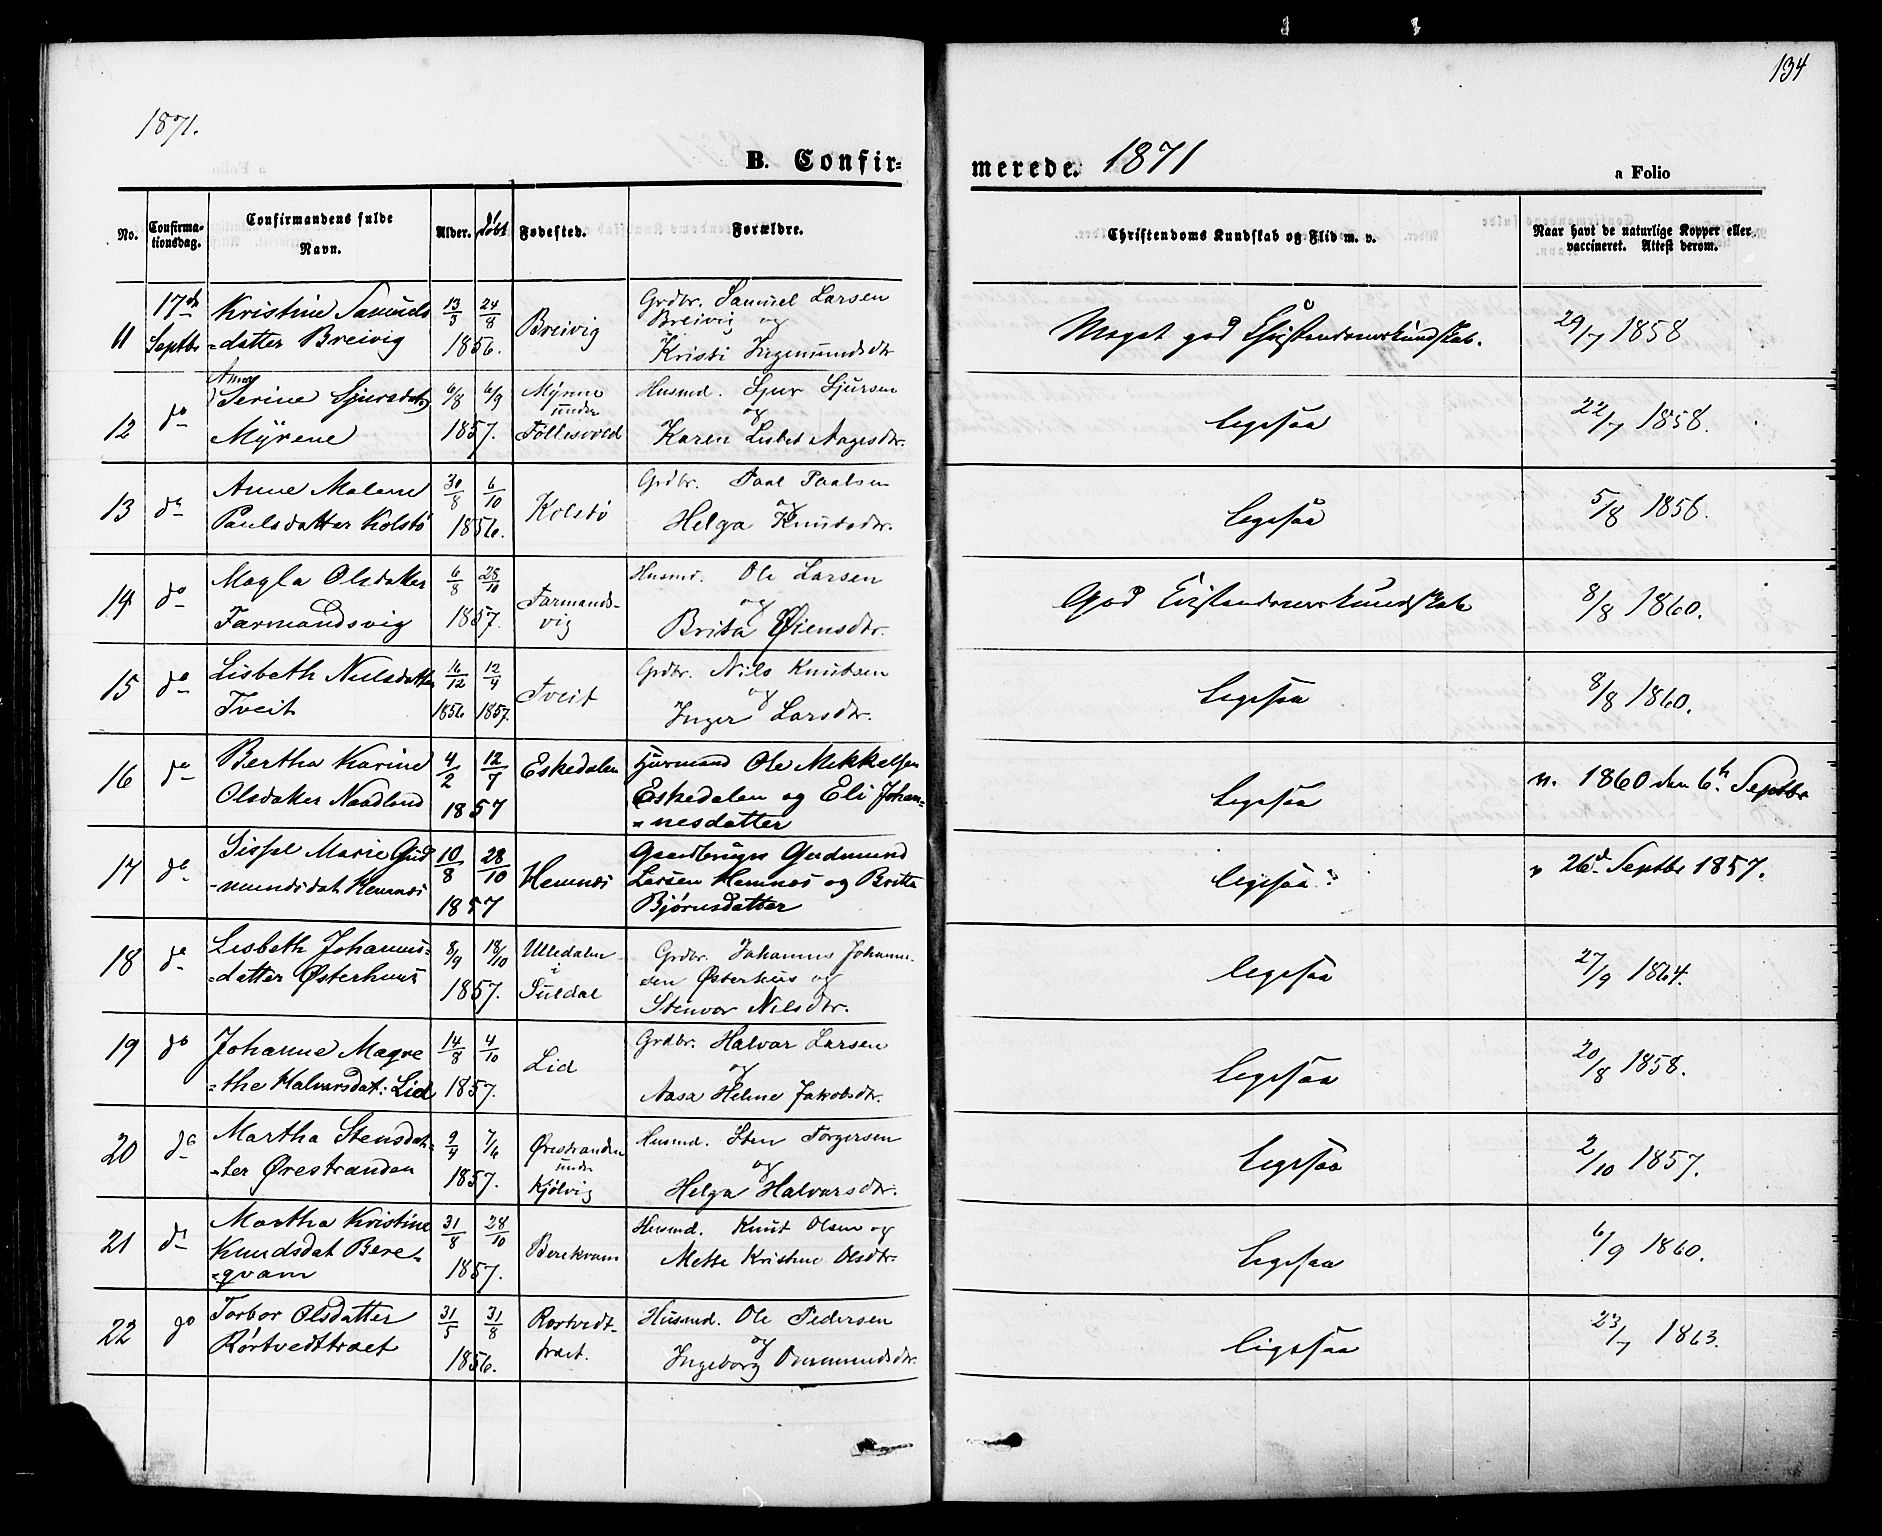 134
1871.
B. Confir-
merede. 1871
a Folio
No.
Confirma-
tionsdag.
Confirmandens fulde
Navn.
Alder.
døbt
Fødested.
Forældre.
Christendoms Kundskab og Flid m. v.
Naar havt de naturlige Kopper eller
vaccineret. Attest derom.
11
17de
Septbr
Kristine Samuels
=datter Breivig
13/3 24/8
1856.
Breivig
Grdbr. Samuel Larsen
Breivig og
Kristi Ingemundsdtr
Meget god Christendomskundskab.
29/7 1858
12
do
Anne
Serine Sjursdat
Myrene
6/8 6/9
1857.
Myrene
under
Follesvold
Husmd. Sjur Sjursen
og
Karen Lisbet Aagesdtr.
ligesaa
22/7 1858.
13
do
Anne Malene
Paulsdatter Kolstø
30/8 6/10
1856.
Kolstø
Grdbr. Paal Paalsen
og
Helga Knutsdtr.
ligesaa
5/8 1858.
14
do
Magla Olsdatter
Tarmandsvig
6/8 28/10
1857.
Tarmands-
vig
Husmd. Ole Larsen
og
Brita Øiensdtr.
God Christendomskundskab
8/8 1860.
15
do
Lisbeth Nilsdatter
Tveit
16/12 12/4
1856 1857.
Tveit
Grdbr. Nils Knutsen
og
Inger Larsdtr.
ligesaa
8/8 1860.
16
do
Bertha Karine
Olsdatter Naadland
4/2 12/7
1857
Eskedalen
Huusmand Ole Mikkelsen
Eskedalen og Eli Johan-
=nesdatter
ligesaa
v. 1860 den 6h Septbr
17
do
Sissel Marie Gud
-mundsdat Hemnes
10/8 28/10
1857
Hemnes
Gaardbruger Gudmund
Larsen Hemnes og Britta
Bjørnsdatter
ligesaa
v 26d Septbr 1857.
18
do
Lisbeth Johannes-
=datter Østerhuus
8/9 18/10
1857.
Ulledalen
i
Suldal
Grdbr. Johannes Johann-
sen Østerhus og
Stenvor Nilsdtr.
ligesaa
27/9 1864.
19
do
Johanne Magre
=the Halvarsdat: Lid
14/8 4/10
1857.
Lid
Grdbr. Halvar Larsen
og
Aasa Helene Jakobsdtr.
ligesaa
20/8 1858.
20
do
Martha Stensdat-
=ter Ørestranden
9/4 7/6
1857.
Ørestranden
under
Kjølvig
Husmd. Sten Torgersen
og
Helga Halvarsdtr.
ligesaa
2/10 1857.
21
do
Martha Kristine
Knudsdat Bere-
=qvam
31/8 28/10
1857.
Berekvam
Husmd. Knut Olsen og
Mette Kristine Olsdtr.
ligesaa
6/9 1860.
22
do
Torbor Olsdatter
Rørtvedttræet
31/5 31/8
1856.
Rørtvedt-
træet.
Husmd. Ole Pedersen
og
Ingeborg Ommundsdtr.
ligesaa
23/7 1863.